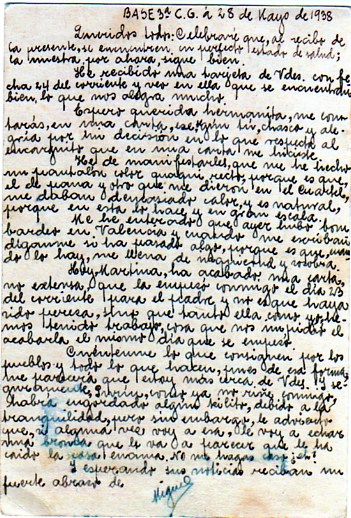 BASE 3ª C.G. á 28 de Mayo de 1938
Queridos todos: Celebraré que, al recibo de
la presente, se encuentren en perfecto estado de salud;
la nuestra por ahora, sigue bien.
He recibido una tarjeta de Vdes. con fe-
cha 24 del corriente y veo en ella que se encuentran
bien, lo que nos alegra mucho.
Espero querida hermanita, me con-
tarás, en una carta, ese chasco y ale-
gría por tu decisión en lo que respecta al
que en una carta me hiciste.
He de manifestarles, que me he hecho
un pantalón color kaki, recto, porque es que,
el de pana y otro que me dieron en el Cuartel,
me daban demasiado calor, y es natural,
porque en esta lo hace y en gran escala.
Me he enterado que ayer hubo bom-
bardeo en Valencia y cuando me escriban
díganme si ha pasado algo, porque es que, cuan-
do lo hay, me llena de angustia y zozobra.
Hoy Martina, ha acabado una carta,
no extensa, que la empezó conmigo el día 23
del corriente para el Prado, y no es que haya
sido pereza, sino que tanto ella, como yo, he-
mos tenido trabajo, cosa que nos impidió el
acabarla el mismo día que se empezó.
Cuéntenme lo que consiguen por los
pueblos y todo lo que hacen, pues de esa forma,
me parecerá que estoy más cerca de Vdes. Y se-
guramente, como ya no riñe conmigo,
habrá engordado algún kilito, debido a la
tranquilidad, pero sin embargo, le advierto
que, si alguna vez voy a esa, le voy a echar
una bronca que le va a parecer que se ha
caído la casa encima. No me hagas caso ¿eh?
Y esperando sus noticias reciban un
fuerte abrazo de
Miguel